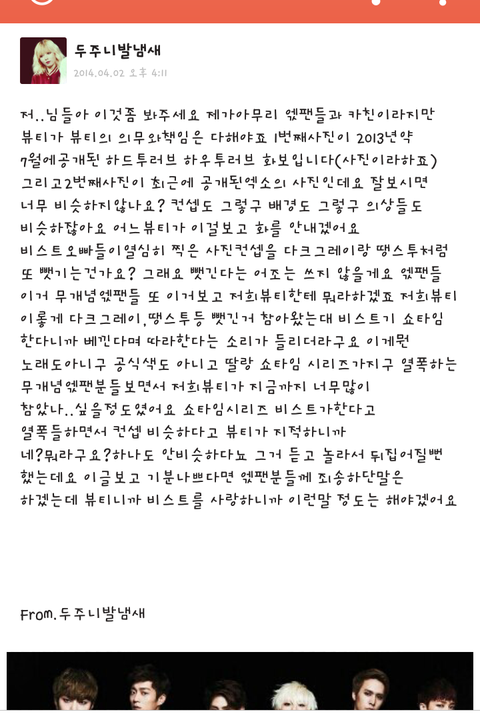 두주니발냄새
2014.04.02 오후 4:11
저..님들아 이것좀 봐주세요 제가아무리 엑팬들과 카친이라지만
뷰티가 뷰티의 의무와책임은 다해야죠 1번째사진이 2013년약
7월에공개된 하드투러브 하우투러브 화보입니다(사진이라하죠)
그리고2번째사진이 최근에 공개된엑소의 사진인데요 잘보시면
너무 비슷하지않나요? 컨셉도 그렇구 배경도 그렇구 의상들도
비슷하잖아요 어느뷰티가 이걸보고 화를 안내겠어요
비스트오빠들이열심히 찍은 사진컨셉을 다크그레이랑 땡스투처럼
또 뺏기는건가요? 그래요 뺏긴다는 어조는 쓰지 않을게요 엑팬들
이거 무개념엑팬들 또 이거보고 저희뷰티한테 뭐라하겠죠 저희뷰티
이렇게 다크그레이,땡스투등 뺏긴거 참아왔는대 비스트기 쇼타임
한다니까 베낀다며 따라한다는 소리가 들리더라구요 이게뭔
노래도아니구 공식색도 아니고 딸랑 쇼타임 시리즈가지구 열폭하는
무개념엑팬분들보면서 저희뷰티가 지금까지 너무많이
참았나..싶을정도였어요 쇼타임시리즈 비스트가한다고
열폭들하면서 컨셉 비슷하다고 뷰티가 지적하니까
네?뭐라구요?하나도 안비슷하다뇨 그거 듣고 놀라서 뒤집어질뻔
했는데요 이글보고 기분나쁘다면 엑팬분들께 죄송하단말은
하겠는데 뷰티니까 비스트를 사랑하니까 이런말 정도는 해야겠어요
From.두주니발냄새